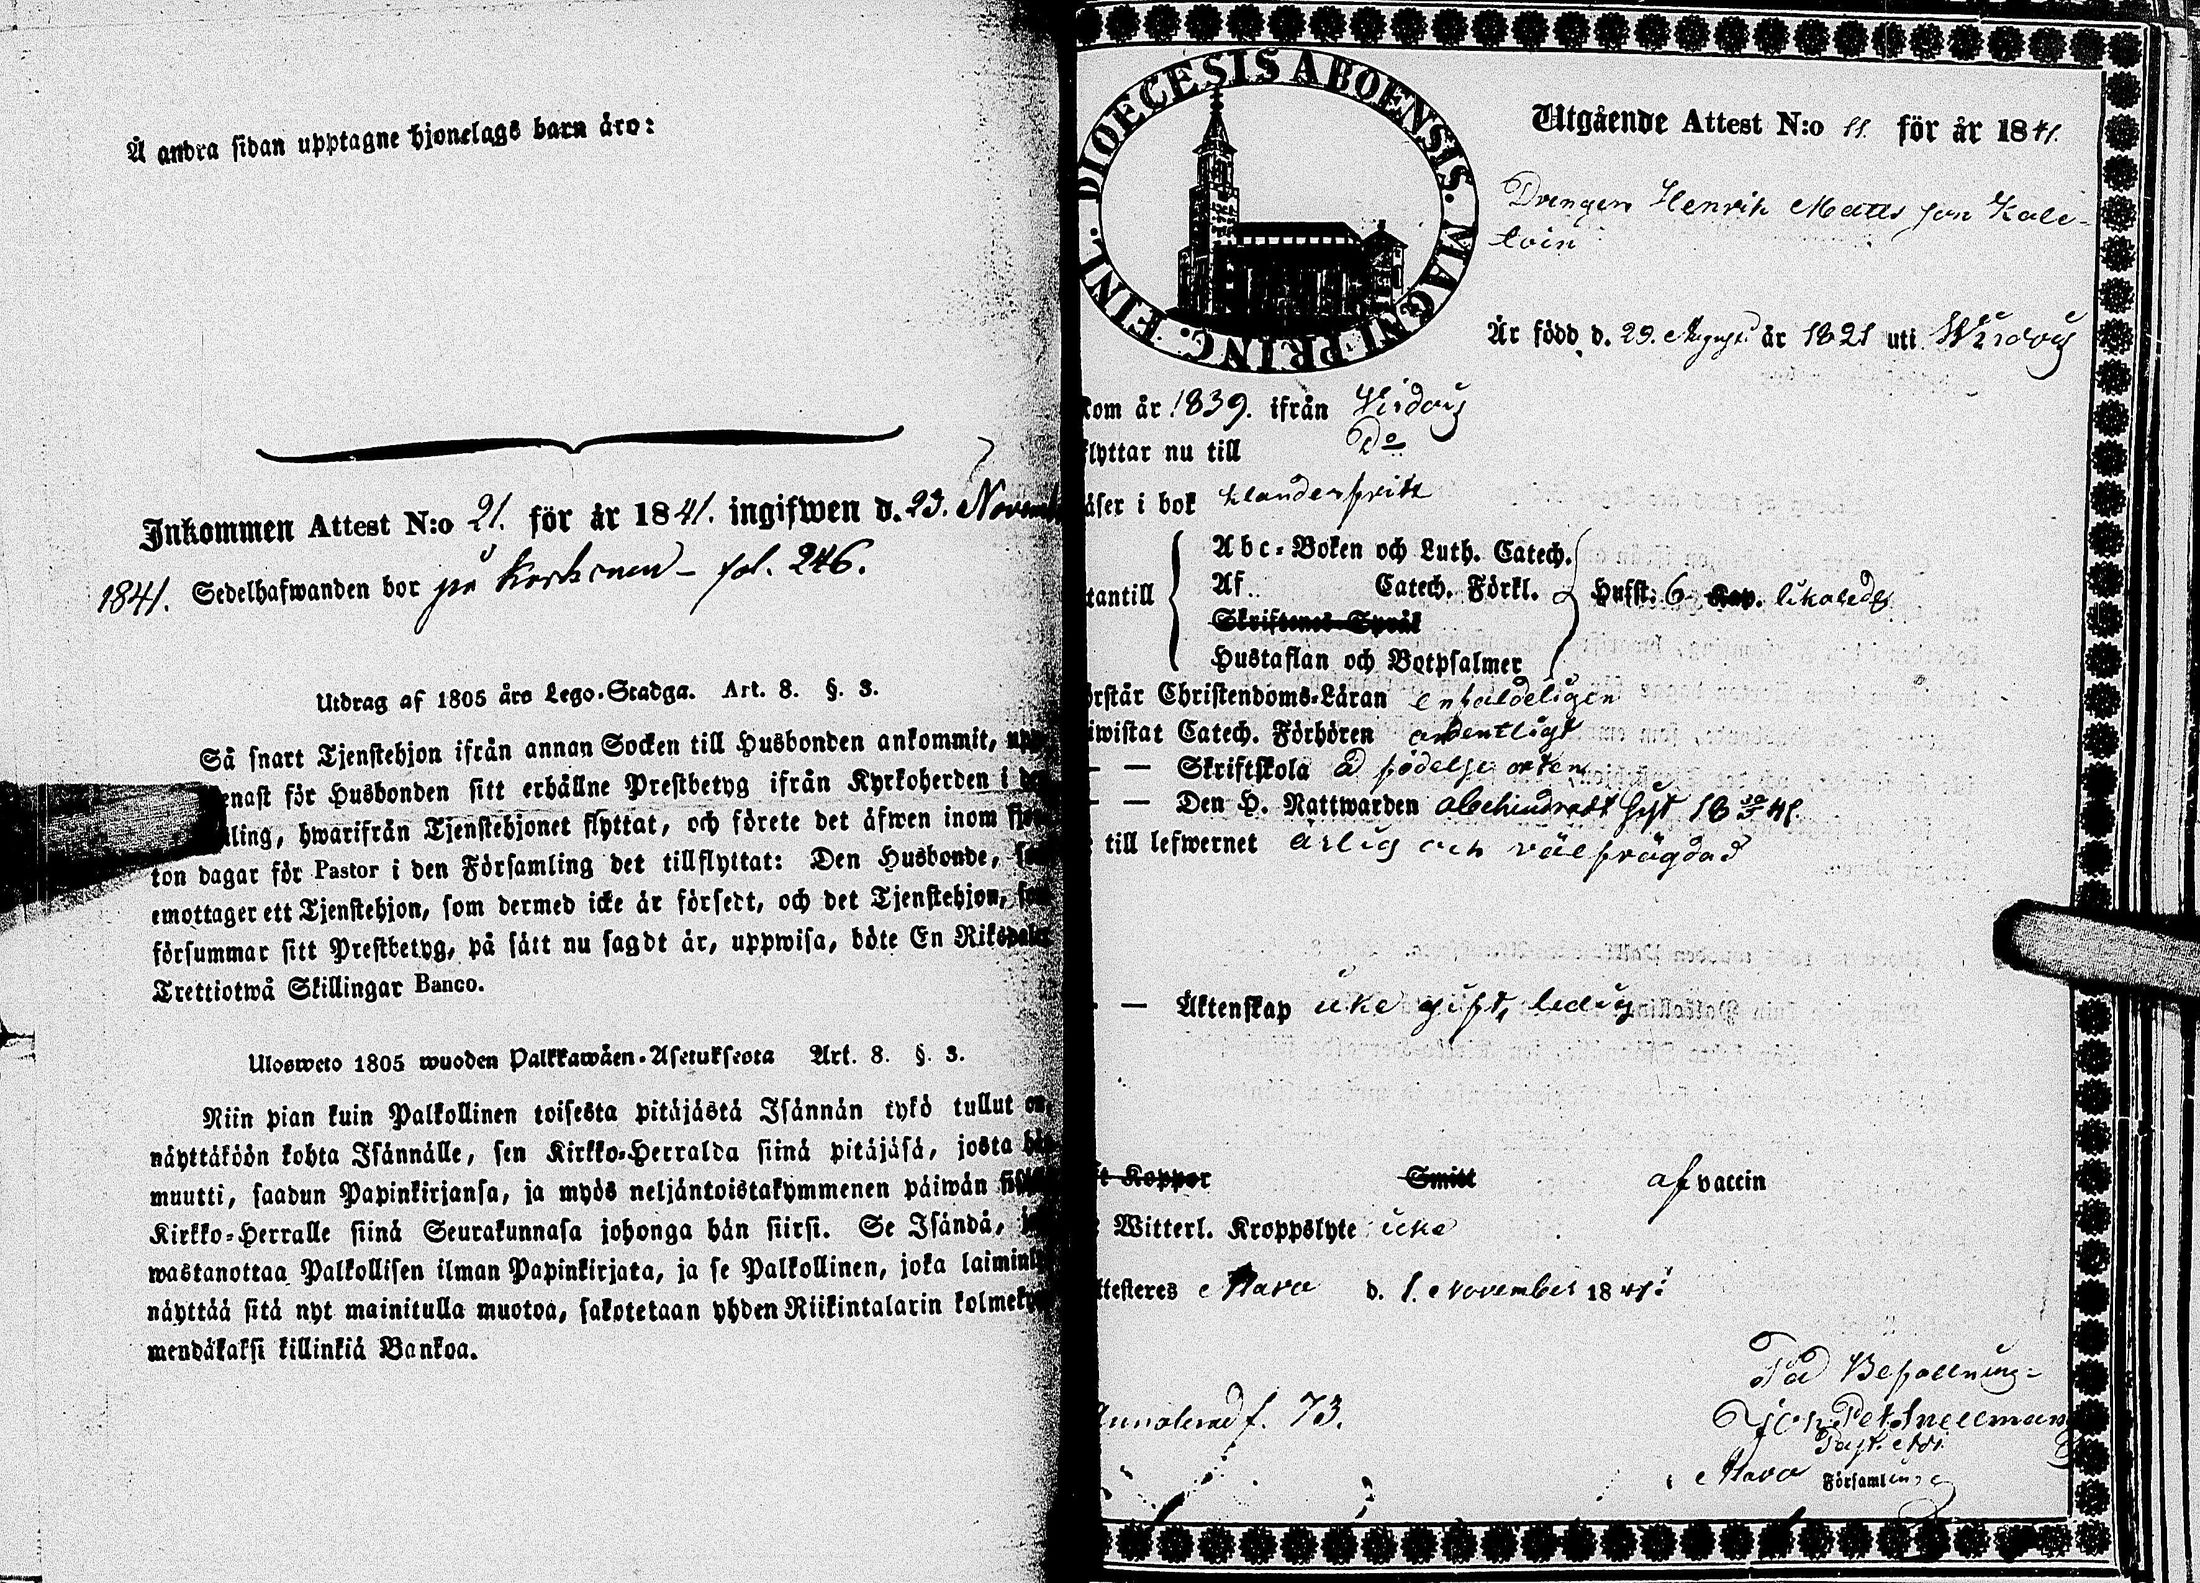 Å andra sidan upptagne hjonelags barn äro:
Inkommen Attest N:o 21. för år 1841. ingifwen d. 23. Novemb
1841. Sedelhafwanden bor på fol. 246.
Utdrag af 1805 års Lego-Stadga. Art. 8. §. 3.
Så snart Tjenstehjon ifrån annan Socken till Husbonden ankommit, upp
enast för Husbonden sitt erhållne Prestbetyg ifrån Kyrkoherden i de
ling, hwarifrån Tjenstehjonet flyttat, och förete det äfwen inom fjor
ton dagar för Pastor i den Församling det tillflyttat: Den Husbonde, so
emottager ett Tjenstehjon, som dermed icke är försedt, och det Tjenstehjon, som
försummar sitt Prestbetyg, på sätt nu sagdt är, uppwisa, böte En Riksdaler
Trettiotwå Skillingar Banco.
Ulosweto 1805 wuoden Palkkawäen-Asetuksesta Art. 8. §. 3.
Niin pian kuin Palkollinen toisesta pitäjästä Isännän tykö tullut on,
näyttäköön kohta Isännälle, sen Kirkko-Herralda siinä pitäjäsä, josta hän
muutti, saadun Papinkirjansa, ja myös neljäntoistakymmenen päiwän sisä
Kirkko-Herralle siinä Seurakunnasa johonga hän siirsi. Se Isändä, jo
wastanottaa Palkollisen ilman Papinkirjata, ja se Palkollinen, joka laiminly
näyttää sitä nyt mainitulla muotoa, sakotetaan yhden Riikintalarin kolmekym
mendäkaksi killinkiä Bankoa.
DIOECESIS ABOENSIS. MAGNI PRINC. FINL.
Utgående Attest N:o 11. för år 1841.
Drengen Henrik Matts son Kale-
toin
Är född d. 29. Augusti år 1821 uti Wirdois
kom år 1839. ifrån Virdois
flyttar nu till Do
äser i bok klanderfritt
Abc-Boken och Luth. Catech.
tantill Af Catech. Förkl. Hufst: 6 Kap. likaledes
Skriftenes Språk
Hustaflan och Botpsalmer
örstår Christendoms-Läran enfaldeligen
iwistat Catech. Förhören ordentligt
— — Skriftskola å födelse orten
— — Den H. Nattwarden obehindradt sist 18 41.
till lefwernet ärlig och välfrägdad
— — Äktenskap icke gift, ledig
t Koppor Smitt af vaccin
Witterl. Kroppslyte icke
ttesteres Mavo d. 1. November 1841:
På Befallning
f. 73. Joh. Pet. Snellman
Past. Adj.
Mavo Församling